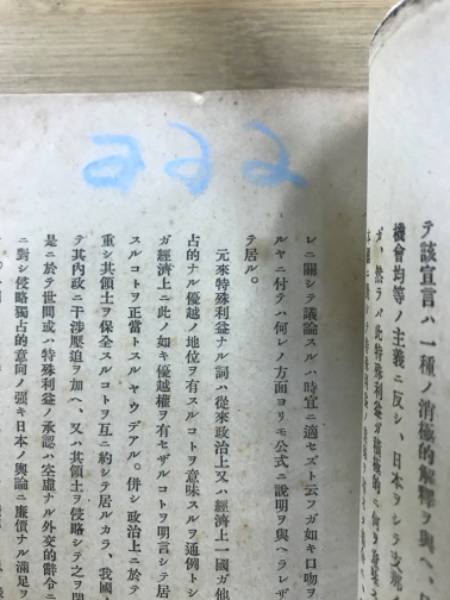 テ該宣言ハ一種ノ消極的解釋ヲ與ヘ、
機會均等ノ主義ニ反シ、日本ヲシテ支那
ガ、然ラバ此特殊利益ガ積極的ニ何ヲ
222
レニ關シテ議論スルハ時宜ニ適セズト云フガ如キ口吻ヲ
ルヤニ付テハ何レノ方面ヨリモ公式ニ説明ヲ與ヘラレザ
テ居ル。
元來特殊利益ナル詞ハ從來政治上又ハ經濟上一國ガ他
占的ナル優越ノ地位ヲ有スルコトヲ意味スルヲ通例トシ
ガ經濟上ニ此ノ如キ優越權ヲ有セザルコトヲ明言シテ居
スルコトヲ正當トスルヤウデアル。併シ政治上ニ於テ
重シ其領土ヲ保全スルコトヲ互ニ約シテ居ルカラ、我國
テ其内政ニ干渉壓迫ヲ加ヘ、又ハ其領土ヲ侵略シテ之ヲ
是ニ於テ世間或ハ特殊利益ノ承認ハ空虚ナル外交的辭令ニ
ニ對シ侵略獨占的意向ノ強キ日本ノ輿論ニ廉價ナル滿足ヲ